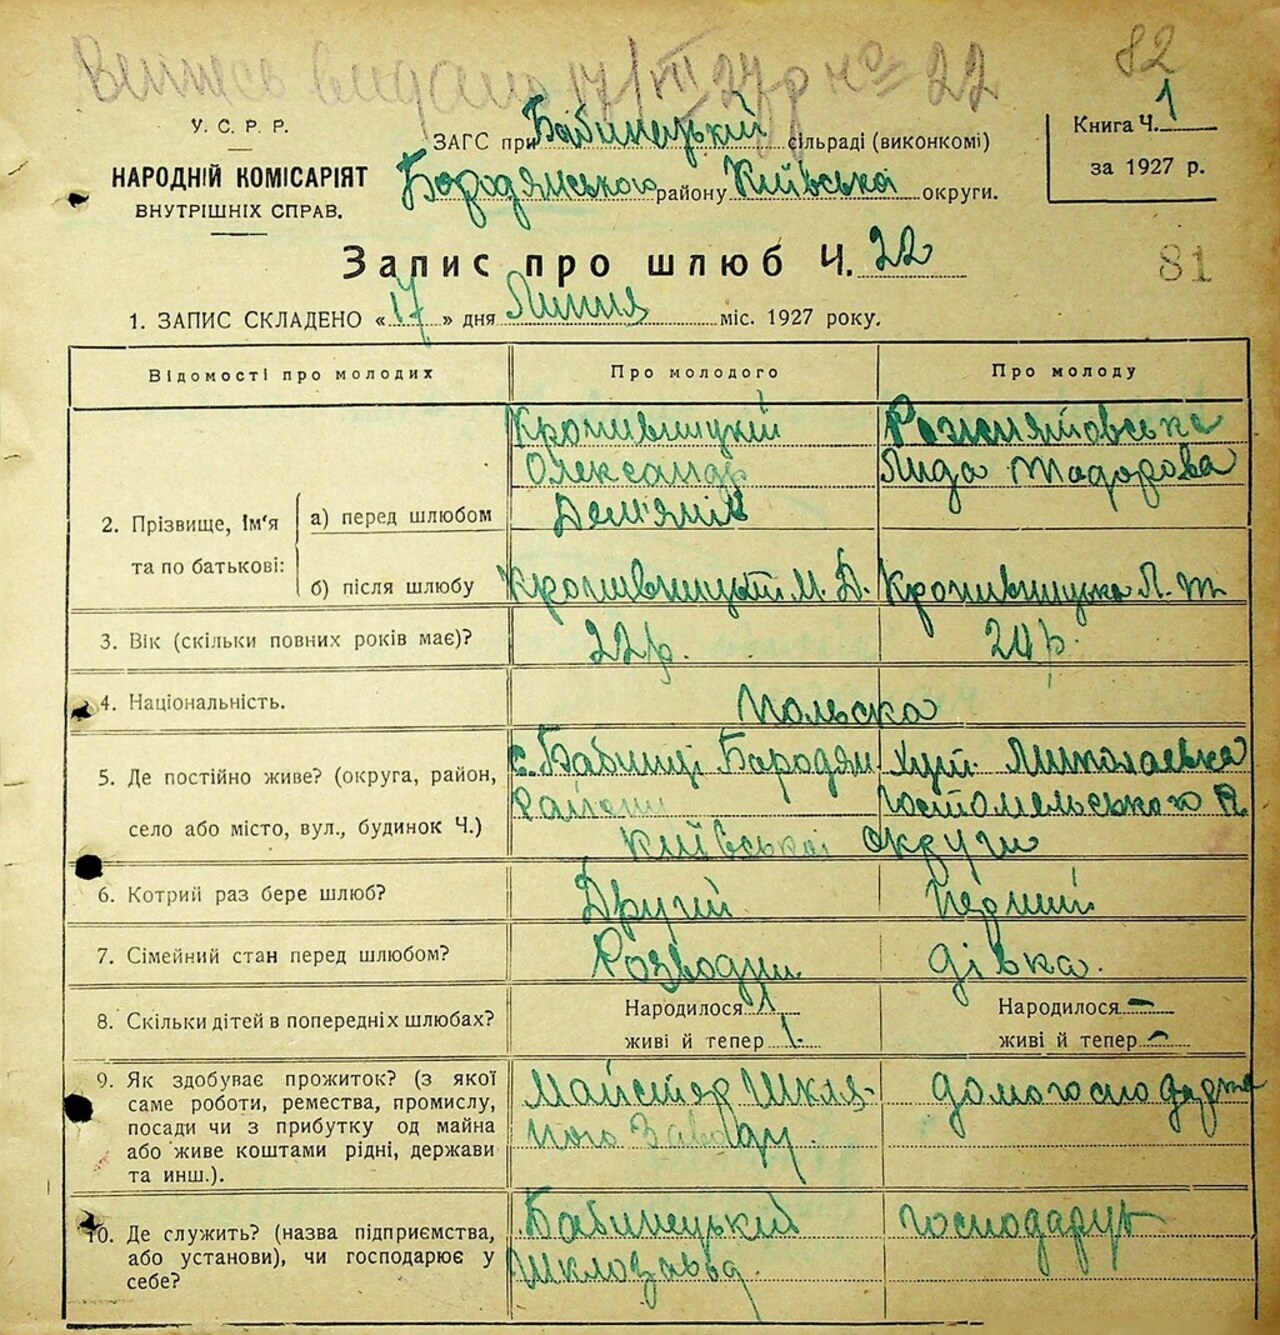 Выпись видано 17/VII 27 р № 22
82
У. С. Р. Р.
НАРОДНІЙ КОМІСАРІЯТ
ВНУТРІШНІХ СПРАВ.
ЗАГС при Бабинецькій сільраді (виконкомі)
Бородянського району Київської округи.
Книга Ч. 1
за 1927 р.
Запис про шлюб Ч. 22
81
1. ЗАПИС СКЛАДЕНО «17» дня Липня міс. 1927 року.
Відомості про молодих Про молодого Про молоду
2. Прізвище, ім'я та по батькові:
а) перед шлюбом
Кропивницкій
Олександр
Дем'янів
Лида Тодорова
б) після шлюбу Кропивницкій Д. Кропивницка Л. Т
3. Вік (скільки повних років має)? 22 р. 24 р.
4. Національність. Польска
5. Де постійно живе? (округа, район,
село або місто, вул., будинок Ч.)
с. Бабинці Бородян. Хут. Миколаевка
Району Гостомельського Р.
Київської округи
6. Котрий раз бере шлюб? Другий Перший
7. Сімейний стан перед шлюбом? Розводни дівка.
8. Скільки дітей в попередніх шлюбах? Народилося 1 Народилося —
живі й тепер 1. живі й тепер —
9. Як здобуває прожиток? (з якої
саме роботи, ремества, промислу,
посади чи з прибутку од майна
або живе коштами рідні, держави
та инш.).
Майстер Шкля-
ного Заводу.
10. Де служить? (назва підприємства,
або установи), чи господарює у
себе?
Бабинецький
Шклозавод.
господарує